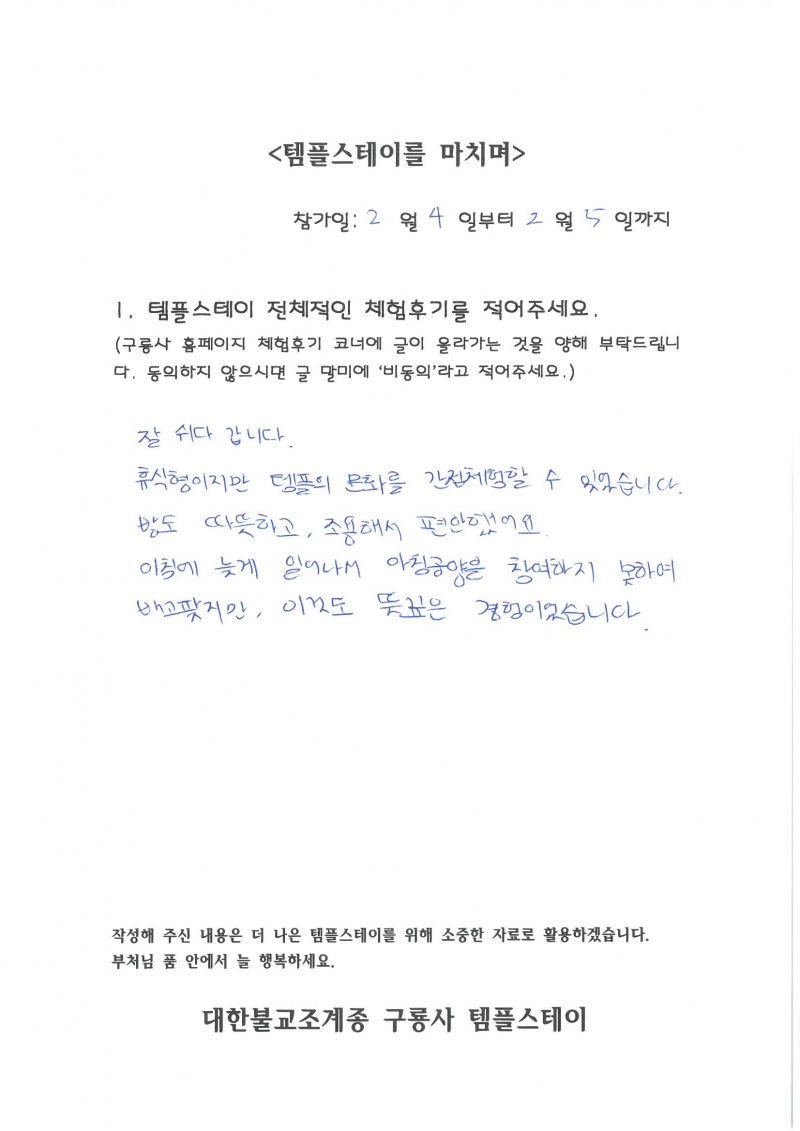 <템플스테이를 마치며>
참가일: 2 월 4 일부터 2 월 5 일까지
1. 템플스테이 전체적인 체험후기를 적어주세요.
(구룡사 홈페이지 체험후기 코너에 글이 올라가는 것을 양해 부탁드립니
다. 동의하지 않으시면 글 말미에 '비동의'라고 적어주세요.)
잘 쉬다 갑니다.
휴식형이지만 템플의 문화를 간접체험할 수 있었습니다.
방도 따뜻하고, 조용해서 편안했어요.
아침에 늦게 일어나서 아침공양을 참여하지 못하여
배고팠지만, 이것도 뜻깊은 경험이었습니다.
작성해 주신 내용은 더 나은 템플스테이를 위해 소중한 자료로 활용하겠습니다.
부처님 품 안에서 늘 행복하세요.
대한불교조계종 구룡사 템플스테이